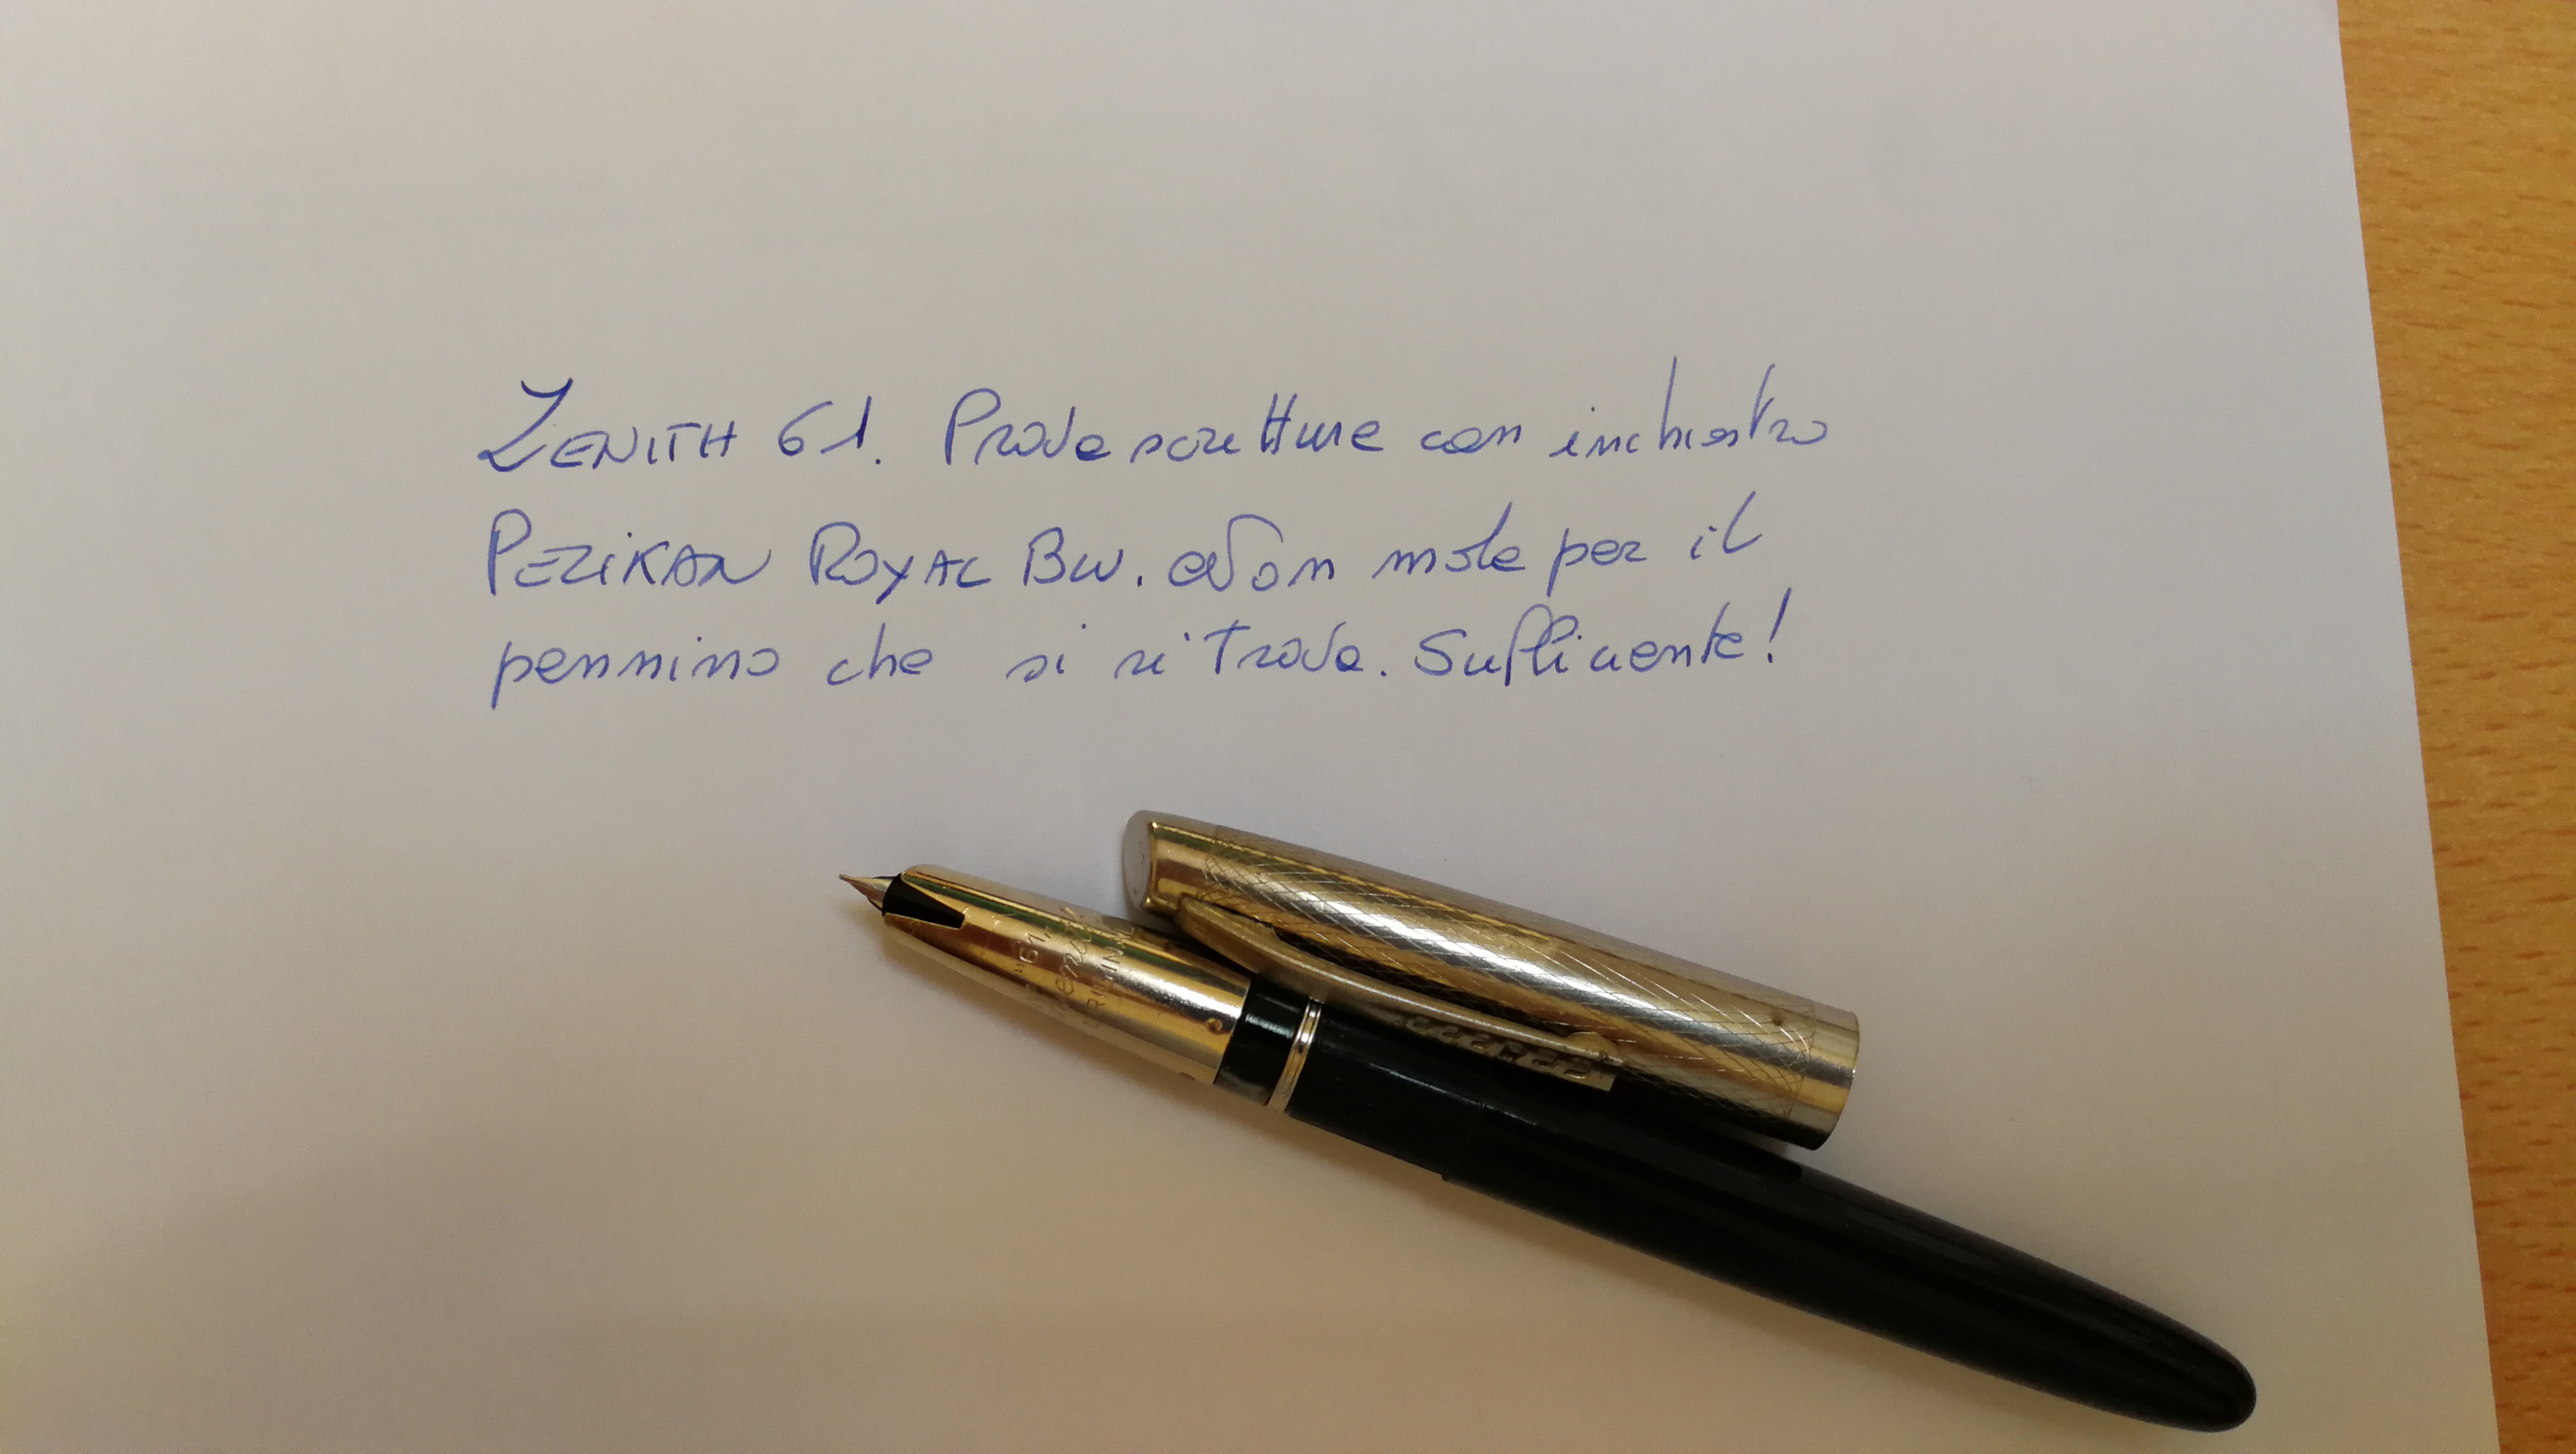 Zenith 61. Prova scrittura con inchiostro
Pelikan Royal Blu. Non male per il
pennino che si ritrova. Sufficiente!
"61"
Zenith